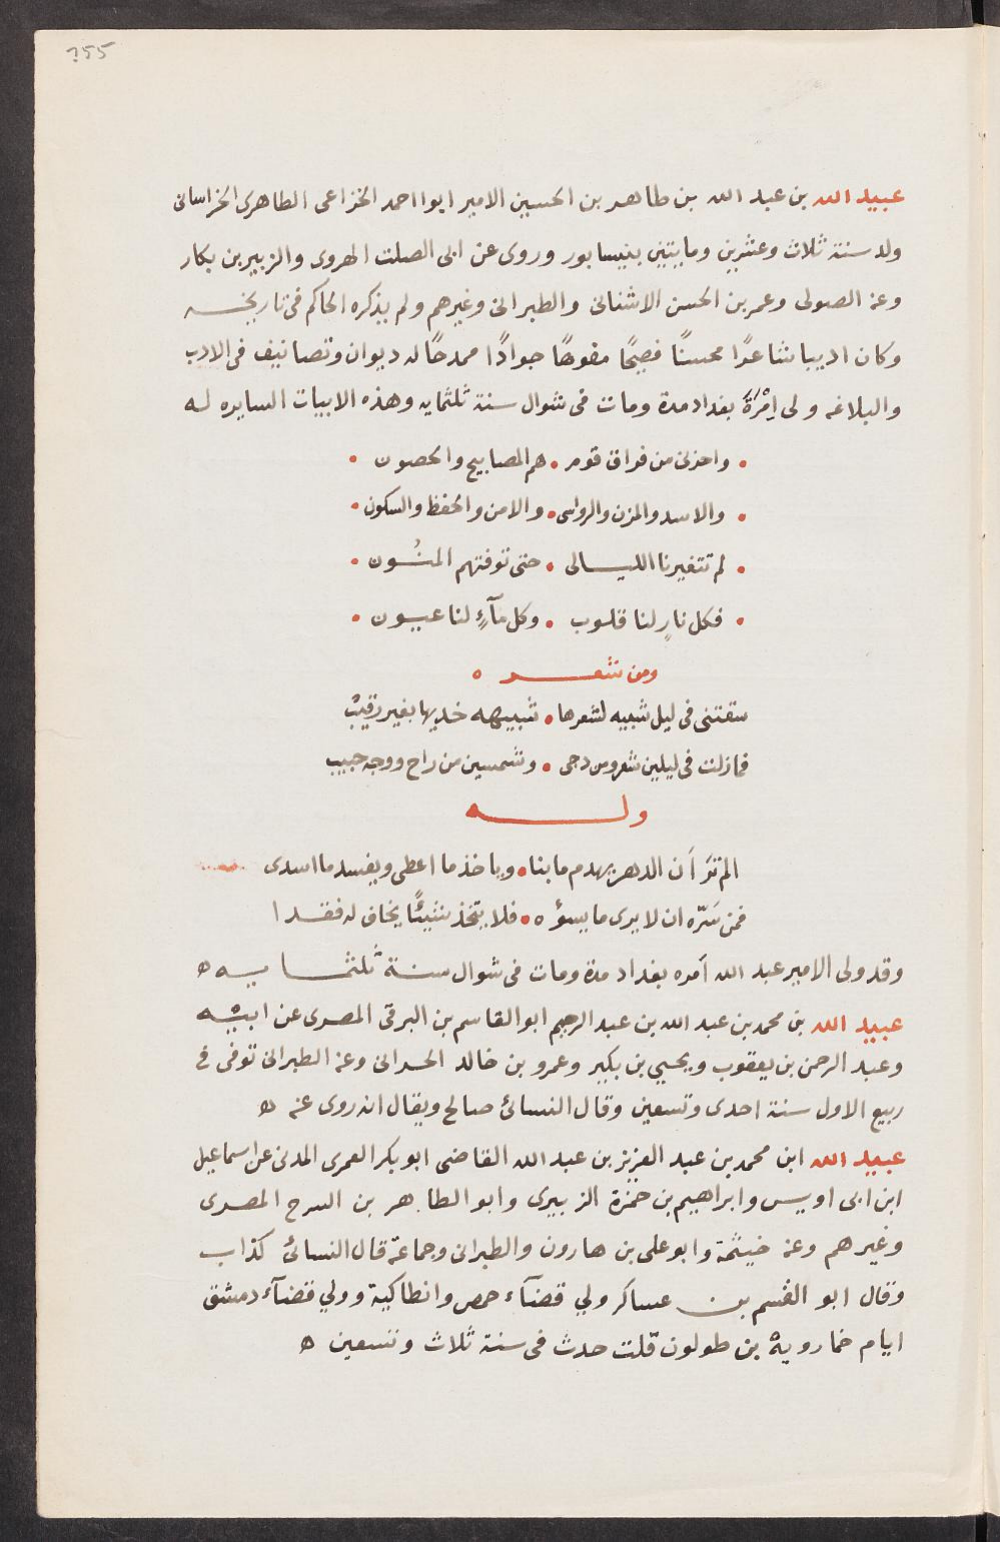 ٢٥٥
عبيد الله بن عبد الله بن طاهر بن الحسين الامير ابوااحمد الخزاعى الطاهرى الخراسانى
ولد سنة ثلاث وعشرين ومايتين بنيسابور وروى عن ابى الصلت الهروى والزبير بن بكار
وعنه الصولى وعمر بن الحسن الاشنانى والطبرانى وغيرهم ولم يذكره الحاكم فى تاريخه
وكان اديبا شاعرًا محسنًا فصيحًا مفوهًا جوادًا ممدحًا له ديوان وتصانيف فى الادب
والبلاغه ولى اِمْرَةَ بغداد مدة ومات فى شوال سنة ثلثمايه وهذه الابيات السايره له
• واحزنى من فراق قوم • هم المصابيح والحصون •
• والاسد والمزن والرواسى • والامن والحفظ والسكون •
• لم تتغيرنا الليالى • حتى توفتهم المنُون •
• فكل نارٍ لنا قلوب • وكل مآءٍ لنا عيون •
ومن شعره
سقتنى فى ليل شبيه لشعرها • شبيهه خديها بغير رقيبٌ
فمازلت فى ليلين شعر ومن دجى • وشمسين من راح ووجه حبيب
وله
الم ترَ اَن الدهر يهدم ما بنا • وياخذ ما اعطى ويفسد ما اسدى
فمن سَرّه ان لا يرى ما يسوؤه • فلا يتخذ شيئًا يخاف له فقدا
وقد ولى الامير عبد الله اَمره بغداد مدة ومات فى شوال سنة ثلثمايه ه
عبيد الله بن محمد بن عبد الله بن عبد الرحيم ابو القاسم بن البرقى المصرى عن ابيه
وعبد الرحمن بن يعقوب ويحيي بن بكير وعمرو بن خالد الحرانى وعنه الطبرانى توفى فى
ربيع الاول سنة احدى وتسعين وقال النسائ صالح ويقال انه روى عنه ه
عبيد الله ابن محمد بن عبد العزيز بن عبد الله القاضى ابو بكر العمرى المدنى عن اسماعيل
ابن ابى اويس وابراهيم بن حمزة الزبيرى وابو الطاهر بن السرح المصرى
وغيرهم وعنه خيثمة وابو على بن هارون والطبرانى وجماعة قال النسائ كذاب
وقال ابو القسم بن عساكر ولي قضآء حمص وانطاكية وولي قضآء دمشق
ايام خمارويهْ بن طولون قلت حدث فى سنة ثلاث وتسعين ه